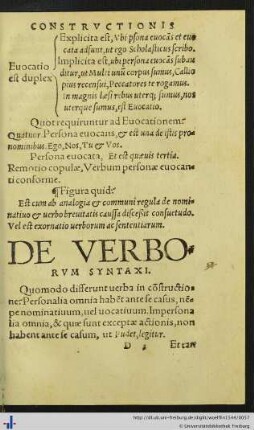 CONSTRVCTIONIS
Explicita est, Vbi psona euocās et euo
cata adsunt, ut ego Scholasticus scribo.
Implicita est, ubi persona euocās subau
Euocatio
ditur, ut Multi unū corpus sumus, Callio
est duplex
pius recensui, Peccatores te rogamus.
in magnis laesi rebus uterq; sumus, nos
uterque sumus, est Euocatio.
Quot requiruntur ad Euocationem?
Quatuor. Persona euocans, & est una de istis pro
nominibus. Ego, Nos, Tu & Vos.
Persona euocata, Et est quaeuis tertia.
Remotio copulae, Verbum personae euocan
ti conforme.
¶ Figura quid?
Est cum ab analogia & communi regula de nomi
natiuo & uerbo breuitatis caussa discessit consuetudo.
Vel est exornatio uerborum ac sententiarum.
DE VERBO-
RVM SYNTAXI.
Quomodo differunt uerba in cōstructio
ne? Personalia omnia habēt ante se casus, nēpe
nominatiuum, uel uocatiuum. Imperson
alia omnia, & quae sunt exceptae actionis, non
habent ante se casum, ut Pudet, legitur.
D
Et tan
http://dl.ub.uni-freiburg.de/diglit/
© Universitätsbibliothek Freiburg